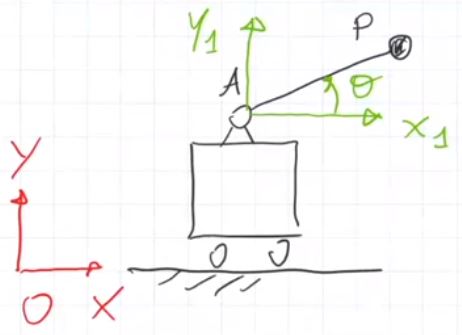 Y₁
P
A
θ
X₁
Y
O X